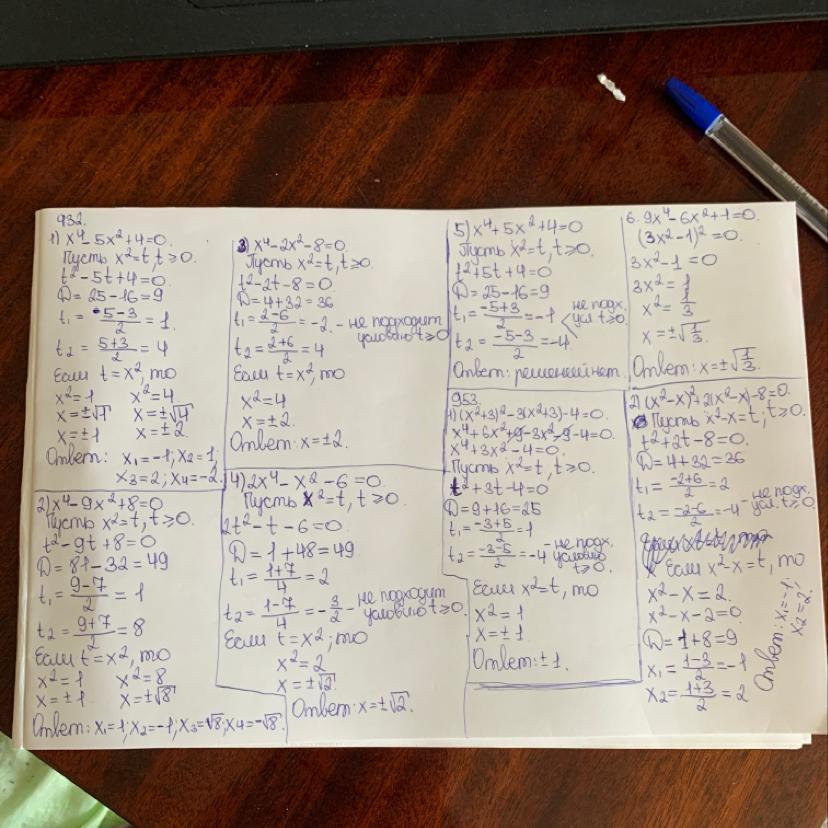 932.
1) x⁴-5x²+4=0.
Пусть x²=t, t≥0.
t²-5t+4=0
D=25-16=9
t₁=(5-3)/2=1.
t₂=(5+3)/2=4
Если t=x², то
x²=1 x²=4
x=±√1 x=±√4
x=±1 x=±2.
Ответ: x₁=-1; x₂=1;
x₃=2; x₄=-2.
2) x⁴-9x²+8=0
Пусть x²=t, t≥0.
t²-9t+8=0
D=81-32=49
t₁=(9-7)/2=1
t₂=(9+7)/2=8
Если t=x², то
x²=1 x²=8
x=±1 x=±√8
Ответ: x₁=1; x₂=-1; x₃=√8; x₄=-√8.
3) x⁴-2x²-8=0
Пусть x²=t, t≥0.
t²-2t-8=0
D=4+32=36
t₁=(2-6)/2=-2. - не подходит
условию t≥0
t₂=(2+6)/2=4
Если t=x², то
x²=4
x=±2.
Ответ: x=±2.
4) 2x⁴-x²-6=0.
Пусть x²=t, t≥0.
2t²-t-6=0.
D=1+48=49
t₁=(1+7)/4=2
t₂=(1-7)/4=-3/2 - не подходит
условию t≥0.
Если t=x²; то
x²=2
x=±√2.
Ответ: x=±√2.
5) x⁴+5x²+4=0
Пусть x²=t, t≥0.
t²+5t+4=0
D=25-16=9
t₁=(-5+3)/2=-1
t₂=(-5-3)/2=-4
не подх.
усл t≥0.
Ответ: решений нет.
6. 9x⁴-6x²+1=0.
(3x²-1)²=0.
3x²-1=0
3x²=1
x²=1/3
x=±√(1/3).
Ответ: x=±√(1/3).
953.
1) (x²+3)²-3(x²+3)-4=0.
x⁴+6x²+9-3x²-9-4=0.
x⁴+3x²-4=0.
Пусть x²=t, t≥0.
t²+3t-4=0
D=9+16=25
t₁=(-3+5)/2=1
t₂=(-3-5)/2=-4 - не подх.
условию
t≥0.
Если x²=t, то
x²=1
x=±1.
Ответ: ±1.
2) (x²-x)²+2(x²-x)-8=0.
Пусть x²-x=t; t≥0.
t²+2t-8=0.
D=4+32=36
t₁=(-2+6)/2=2
t₂=(-2-6)/2=-4 - не подх.
усл. t≥0.
Если x²-x=t, то
x²-x=2.
x²-x-2=0.
D=1+8=9
x₁=(1-3)/2=-1
x₂=(1+3)/2=2
Ответ: x₁=-1;
x₂=2.